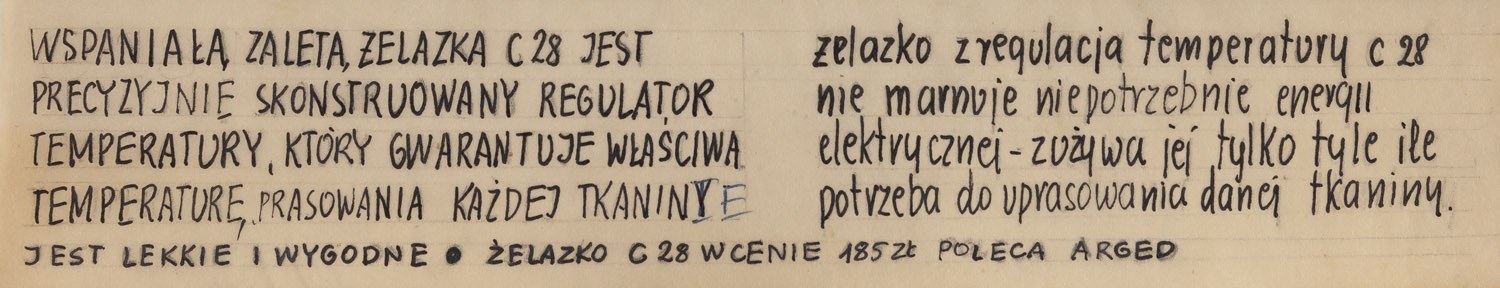 WSPANIAŁĄ ZALETĄ ŻELAZKA C 28 JEST
PRECYZYJNIE SKONSTRUOWANY REGULATOR
TEMPERATURY, KTÓRY GWARANTUJE WŁAŚCIWĄ
TEMPERATURĘ, PRASOWANIA KAŻDEJ TKANINY E
żelazko z regulacją temperatury c 28
nie marnuje niepotrzebnie energii
elektrycznej - zużywa jej tylko tyle ile
potrzeba do uprasowania danej tkaniny.
JEST LEKKIE I WYGODNE • ŻELAZKO C 28 W CENIE 185 ZŁ POLECA ARGED